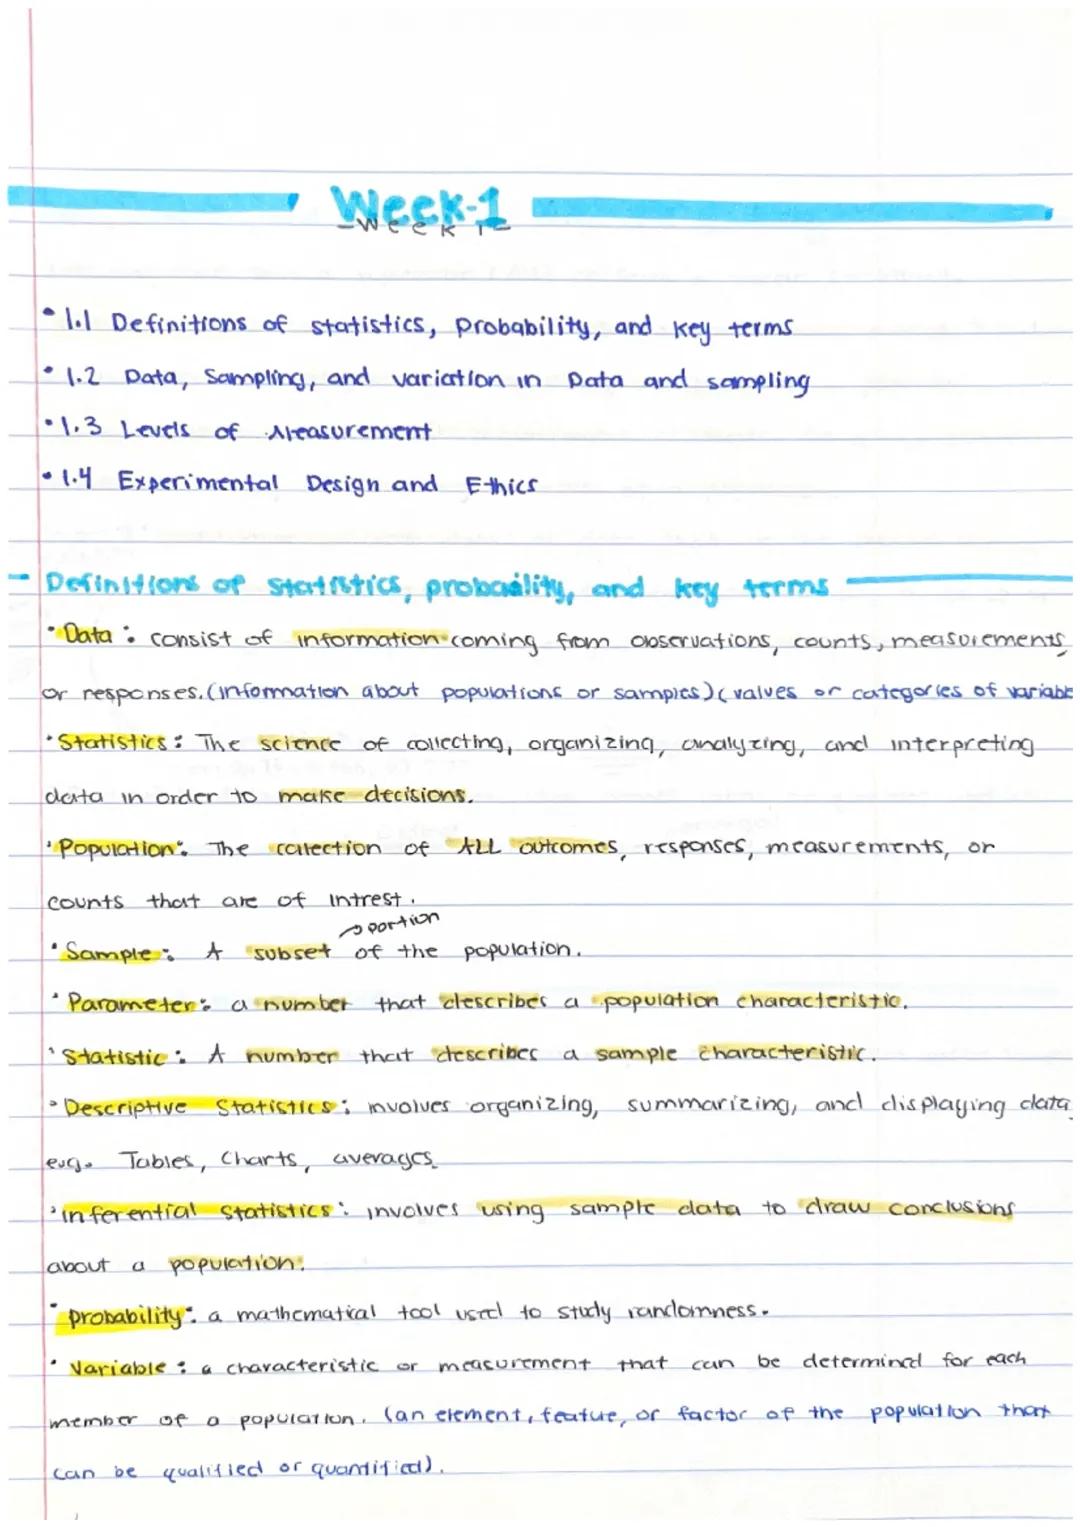 Week-1
-Week 1-
• 1.1 Definitions of statistics, Probability, and key terms
• 1.2 Data, Sampling, and variation in Data and sampling
• 1.3 Levels of Measurement
• 1.4 Experimental Design and Ethics
- Definitions of statistics, probability, and key terms
• Data: consist of information coming from observations, counts, measurements,
or responses. (information about populations or samples) (values or categories of variable
• Statistics: The science of collecting, organizing, analyzing, and interpreting
data in order to make decisions.
• Population: The collection of ALL outcomes, responses, measurements, or
counts that are of intrest.
→ portion
• Sample: A subset of the population.
• Parameter: a number that describes a population characteristic.
• Statistic: A number that describes a sample characteristic.
• Descriptive Statistics: involves organizing, summarizing, and displaying data,
e.g. Tables, Charts, averages
• inferential Statistics: involves using sample data to draw conclusions
about a population.
• probability: a mathematical tool used to study randomness.
• Variable: a characteristic or measurement that can be determined for each
member of a population. (an element, feature, or factor of the population that
can be qualified or quantified).